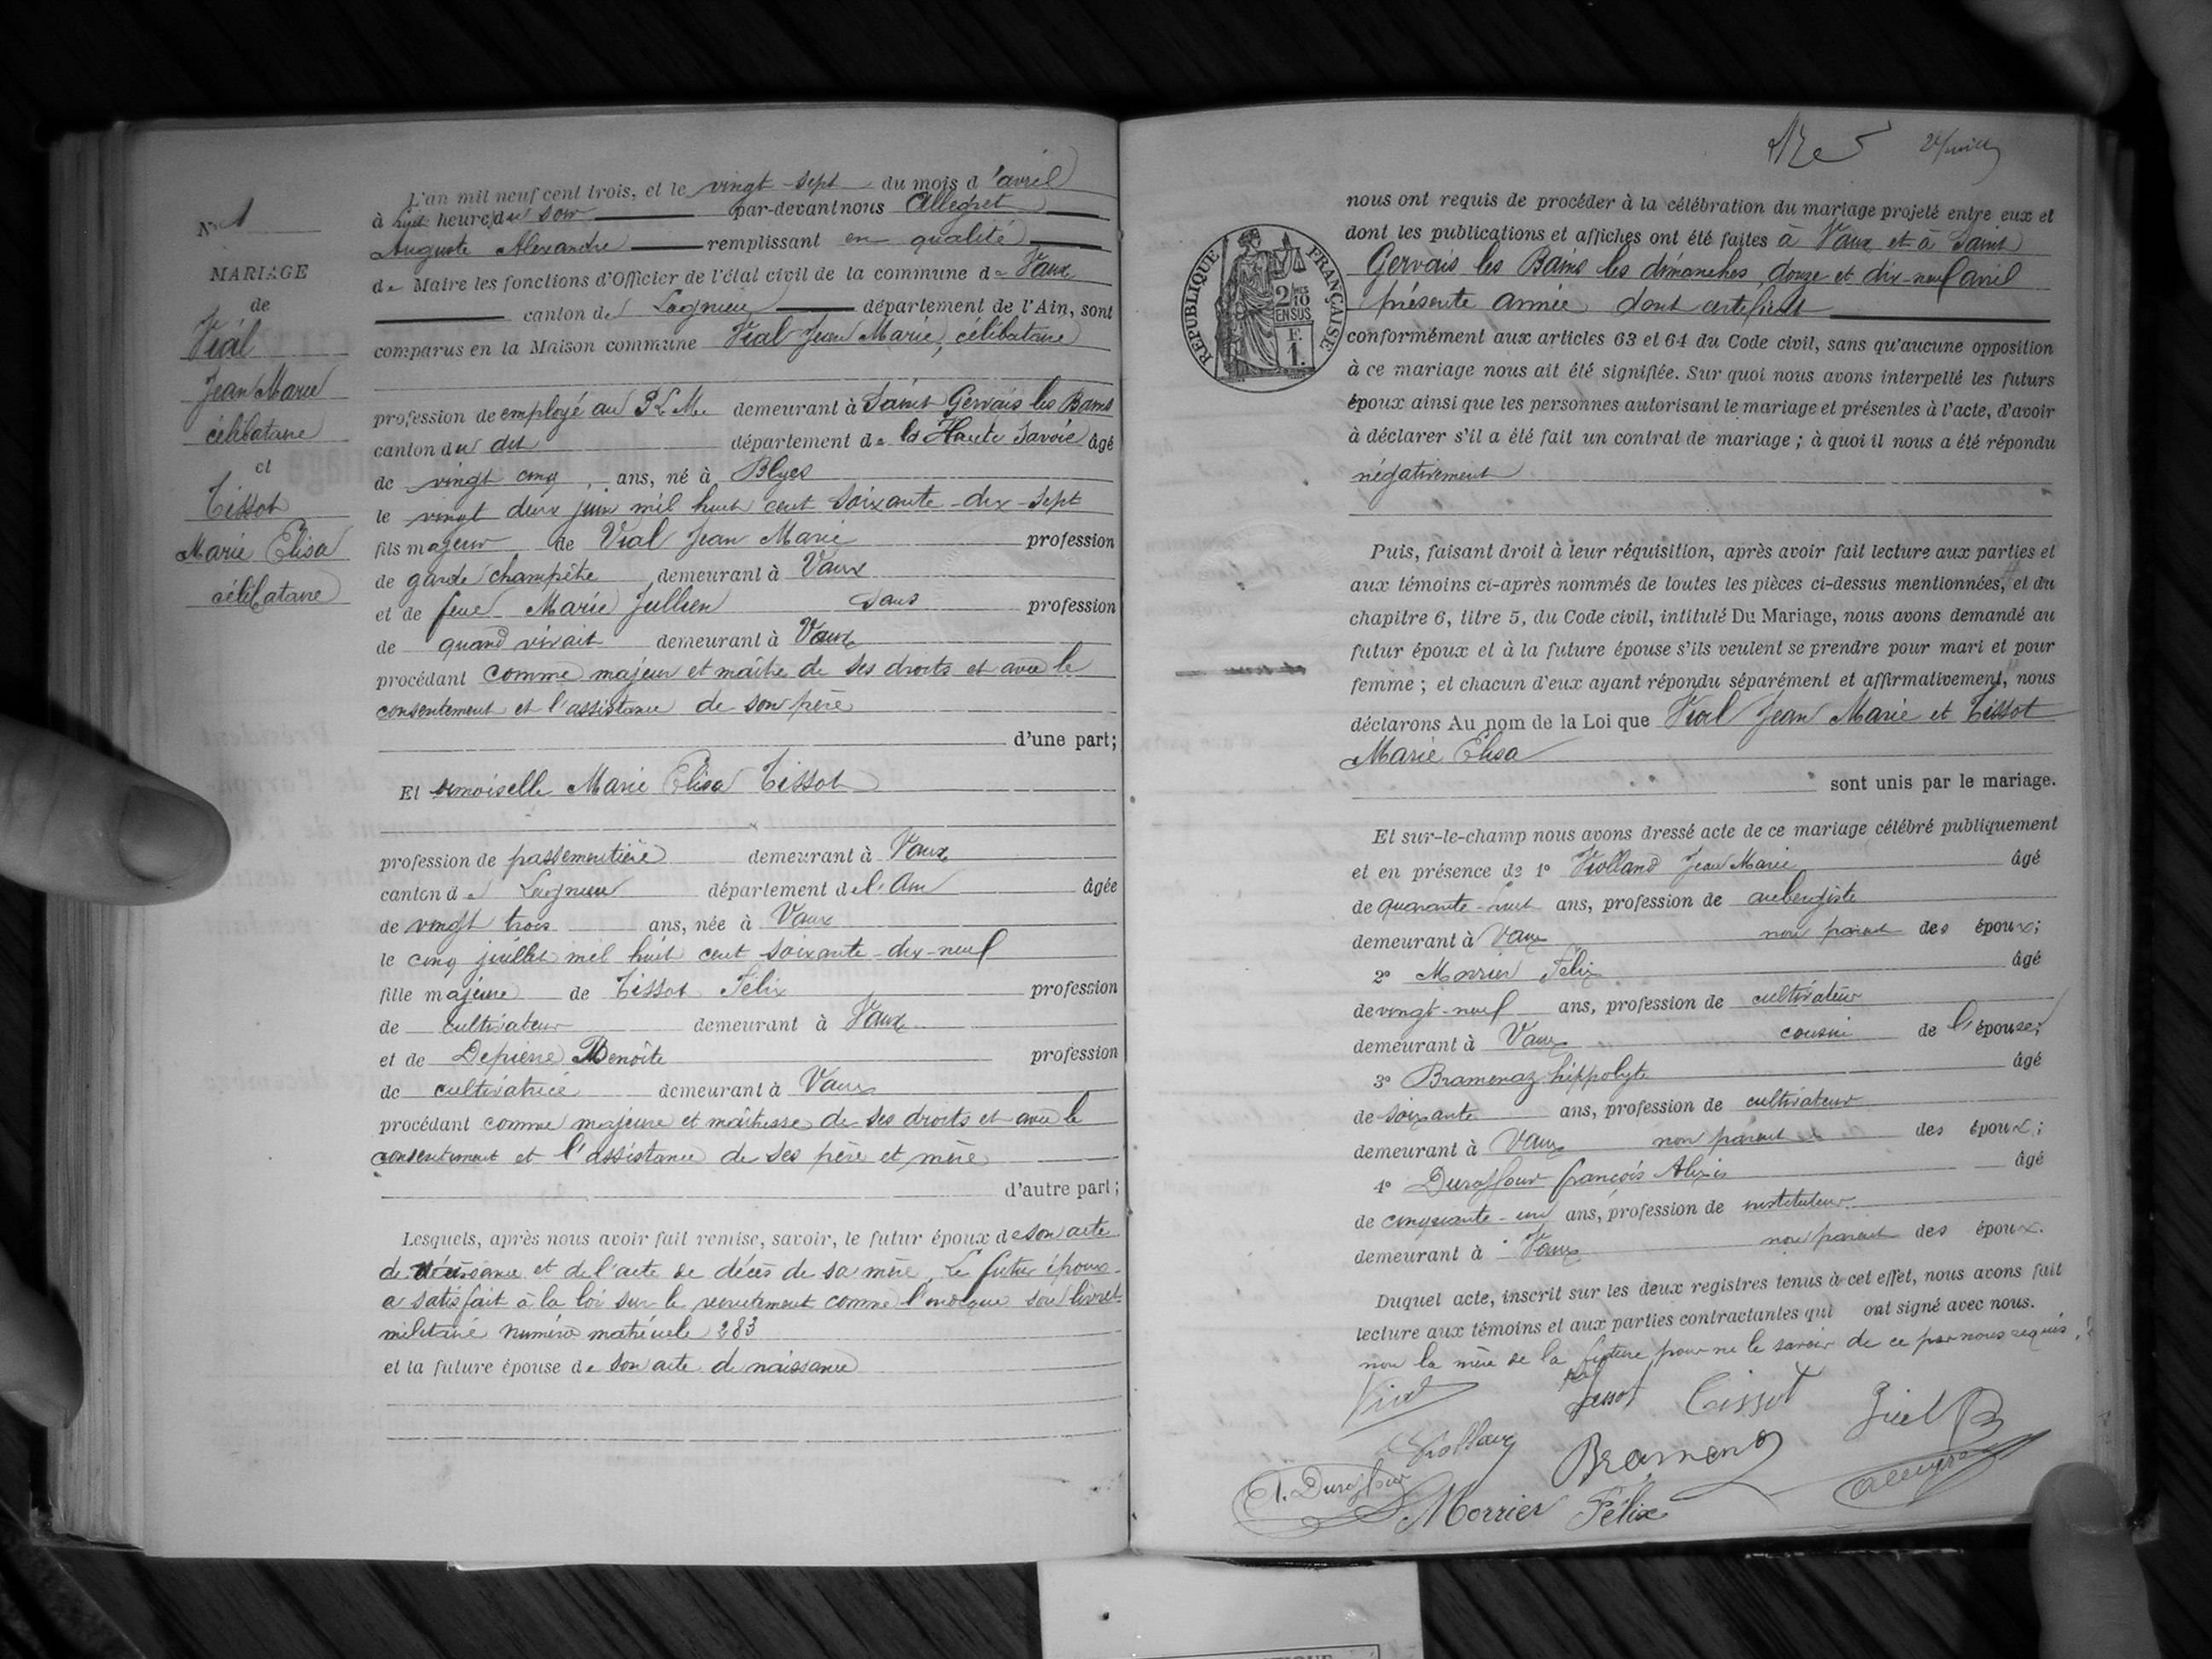 N° 1
MARIAGE
de
Vial
Jean Marie
célibataire
et
Tissot
Marie Elisa
célibataire
L'an mil neuf cent trois, et le vingt-sept du mois d'avril
à huit heures du soir par-devant nous Allegret
Auguste Alexandre remplissant en qualité
de Maire les fonctions d'Officier de l'état civil de la commune de Vaux
canton de Lagnieu département de l'Ain, sont
comparus en la Maison commune Vial Jean Marie, célibataire
profession de employé au P.L.M. demeurant à Saint Gervais les Bains
canton du dit département de la Haute Savoie âgé
de vingt cinq ans, né à Blyes
le vingt deux juin mil huit cent soixante-dix-sept
fils majeur de Vial Jean Marie profession
de garde champêtre demeurant à Vaux
et de feue Marie Jullien sans profession
de quand vivait demeurant à Vaux
procédant comme majeur et maître de ses droits et avec le
consentement et l'assistance de son père
d'une part;
Et demoiselle Marie Elisa Tissot
profession de passementière demeurant à Vaux
canton de Lagnieu département de l'Ain âgée
de vingt trois ans, née à Vaux
le cinq juillet mil huit cent soixante-dix-neuf
fille majeure de Tissot Félix profession
de cultivateur demeurant à Vaux
et de Depierre Benoîte profession
de cultivatrice demeurant à Vaux
procédant comme majeure et maîtresse de ses droits et avec le
consentement et l'assistance de ses père et mère
d'autre part;
Lesquels, après nous avoir fait remise, savoir, le futur époux de son acte
de naissance et de l'acte de décès de sa mère. Le futur époux
a satisfait à la loi sur le recrutement comme l'indique son livret
militaire numéro matricule 283
et la future épouse de son acte de naissance
nous ont requis de procéder à la célébration du mariage projeté entre eux et
dont les publications et affiches ont été faites à Vaux et à Saint
Gervais les Bains les dimanches douze et dix-neuf avril
présente année dont certificat
RÉPUBLIQUE FRANÇAISE
2/10
EN SUS
F.
1.
conformément aux articles 63 et 64 du Code civil, sans qu'aucune opposition
à ce mariage nous ait été signifiée. Sur quoi nous avons interpellé les futurs
époux ainsi que les personnes autorisant le mariage et présentes à l'acte, d'avoir
à déclarer s'il a été fait un contrat de mariage ; à quoi il nous a été répondu
négativement
Puis, faisant droit à leur réquisition, après avoir fait lecture aux parties et
aux témoins ci-après nommés de toutes les pièces ci-dessus mentionnées, et du
chapitre 6, titre 5, du Code civil, intitulé Du Mariage, nous avons demandé au
futur époux et à la future épouse s'ils veulent se prendre pour mari et pour
femme ; et chacun d'eux ayant répondu séparément et affirmativement, nous
déclarons Au nom de la Loi que Vial Jean Marie et Tissot
Marie Elisa
sont unis par le mariage.
Et sur-le-champ nous avons dressé acte de ce mariage célébré publiquement
et en présence de 1° Violland Jean Marie âgé
de quarante-huit ans, profession de aubergiste
demeurant à Vaux non parent des époux;
2° Morrier Félix âgé
de vingt-neuf ans, profession de cultivateur
demeurant à Vaux cousin de l'épouse;
3° Bramenaz hippolyte âgé
de soixante ans, profession de cultivateur
demeurant à Vaux non parent des époux;
4° Duraffour françois Alexis âgé
de cinquante-un ans, profession de instituteur
demeurant à Vaux non parent des époux.
Duquel acte, inscrit sur les deux registres tenus à cet effet, nous avons fait
lecture aux témoins et aux parties contractantes qui ont signé avec nous.
non la mère de la future pour ne le savoir de ce par nous requis.
Vial Tissot Tissot
Violland
A. Duraffour
Morrier Félix